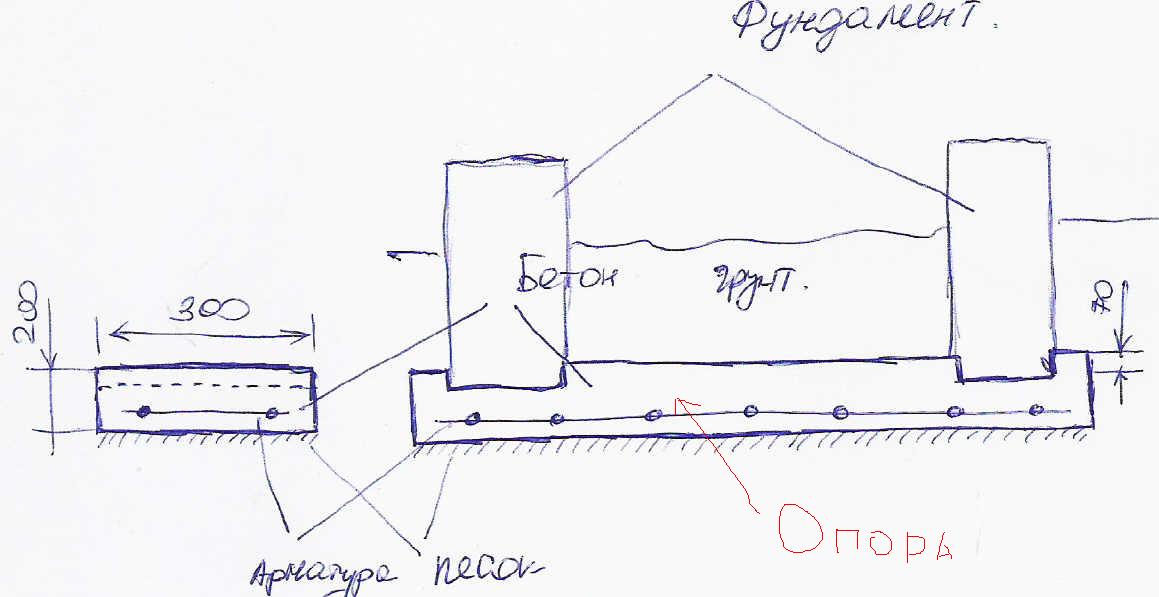 Фундамент.
Бетон
грунт.
200
300
70
Опора
Арматура
песок